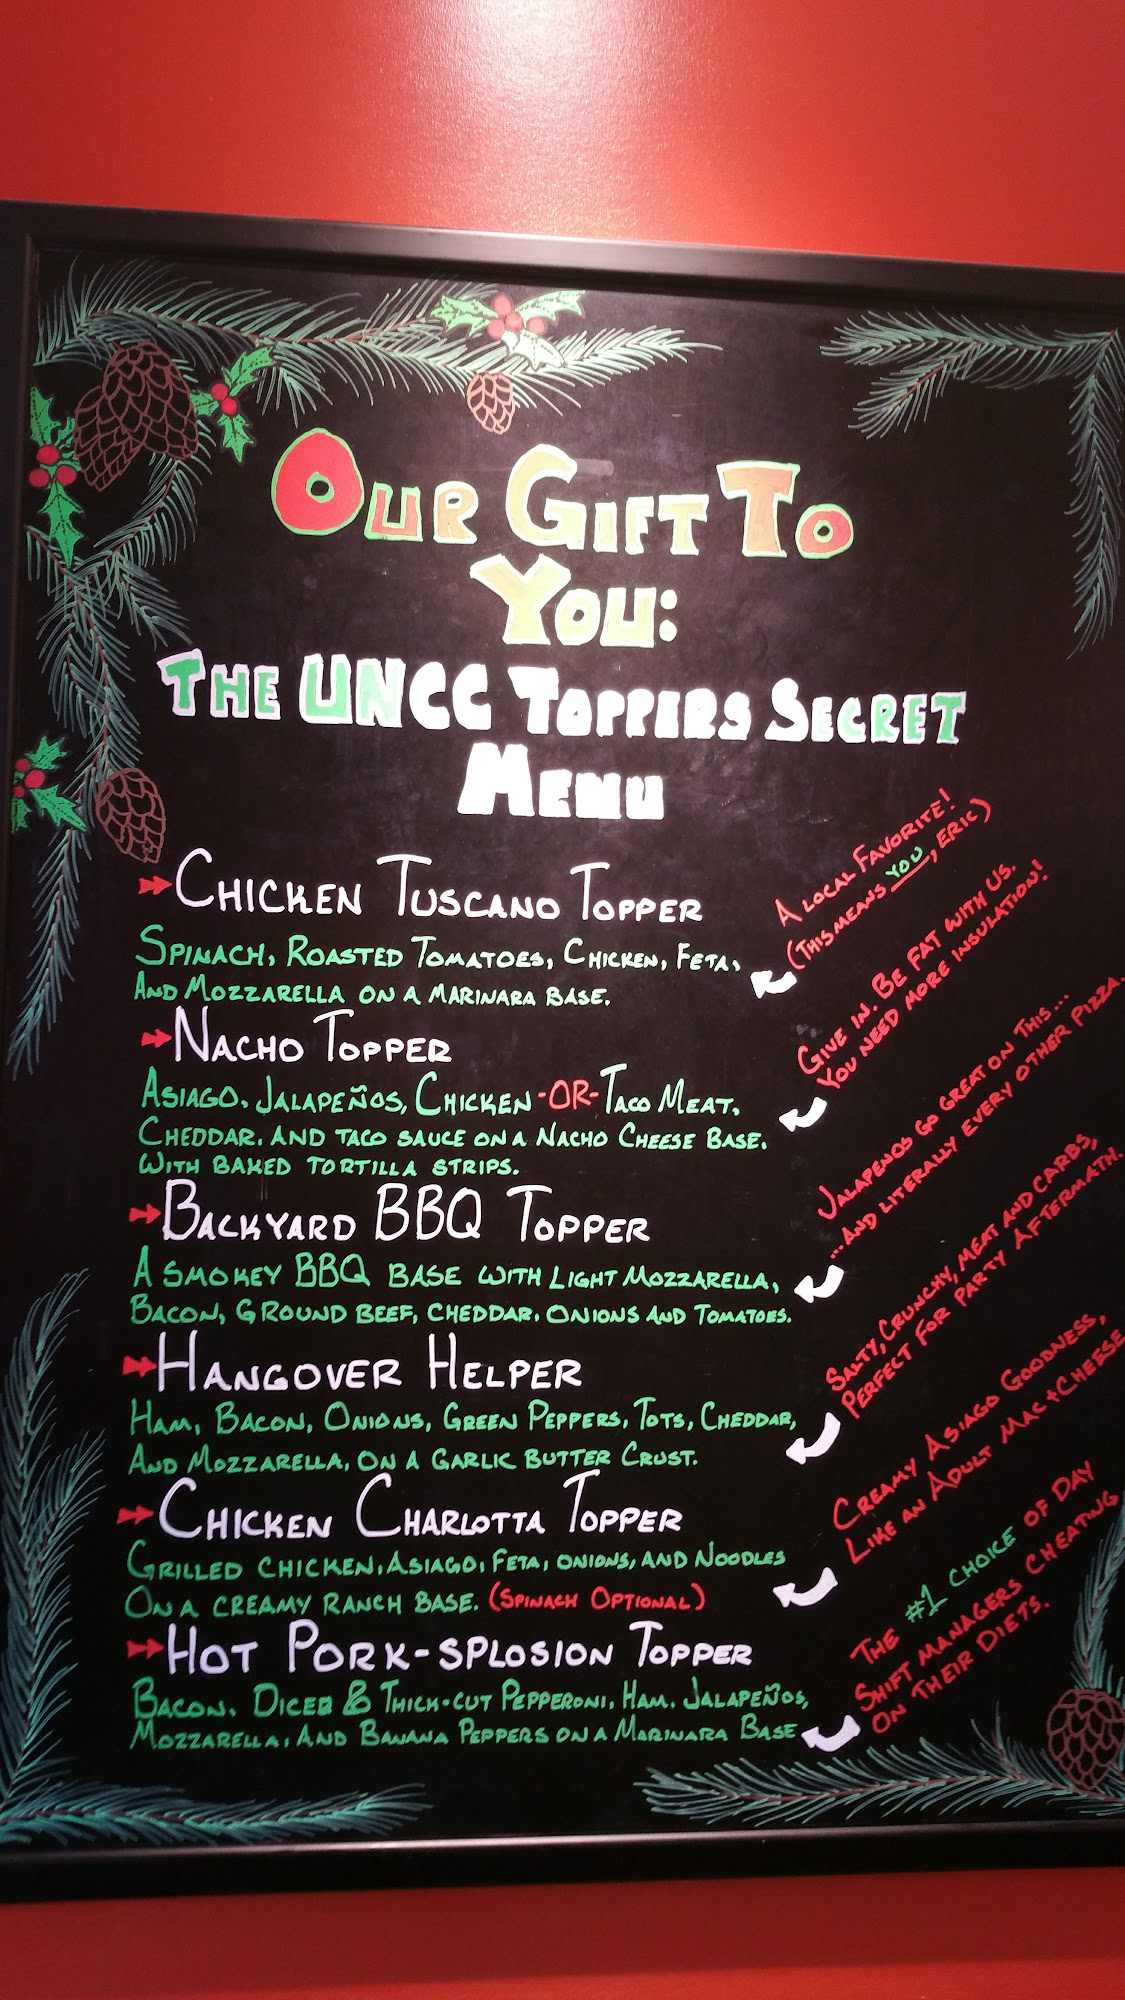 Our Gift To
You:
The UNCC Toppers Secret
Menu
Chicken Tuscano Topper
Spinach, Roasted Tomatoes, Chicken, Feta,
And Mozzarella on a Marinara Base.
A local Favorite!
(This means you, Eric)
Nacho Topper
Asiago, Jalapeños, Chicken -OR- Taco Meat,
Cheddar, and taco sauce on a Nacho Cheese Base.
With baked tortilla strips.
Give in. Be fat with us.
You need more insulation!
Backyard BBQ Topper
A smokey BBQ base with Light Mozzarella,
Bacon, Ground Beef, Cheddar, Onions and Tomatoes.
Jalapenos go great on this...
...and literally every other pizza.
Hangover Helper
Ham, Bacon, Onions, Green Peppers, Tots, Cheddar,
And Mozzarella, on a Garlic Butter Crust.
Salty, Crunchy, Meat and Carbs,
Perfect for party aftermath.
Chicken Charlotta Topper
Grilled chicken, Asiago, Feta, onions, and Noodles
On a creamy ranch base. (Spinach Optional)
Creamy Asiago Goodness,
Like an Adult Mac + Cheese
Hot Pork-splosion Topper
Bacon, Diced & Thick-cut Pepperoni, Ham, Jalapeños,
Mozzarella, and Banana Peppers on a Marinara Base
The #1 choice of day
shift managers cheating
on their diets.